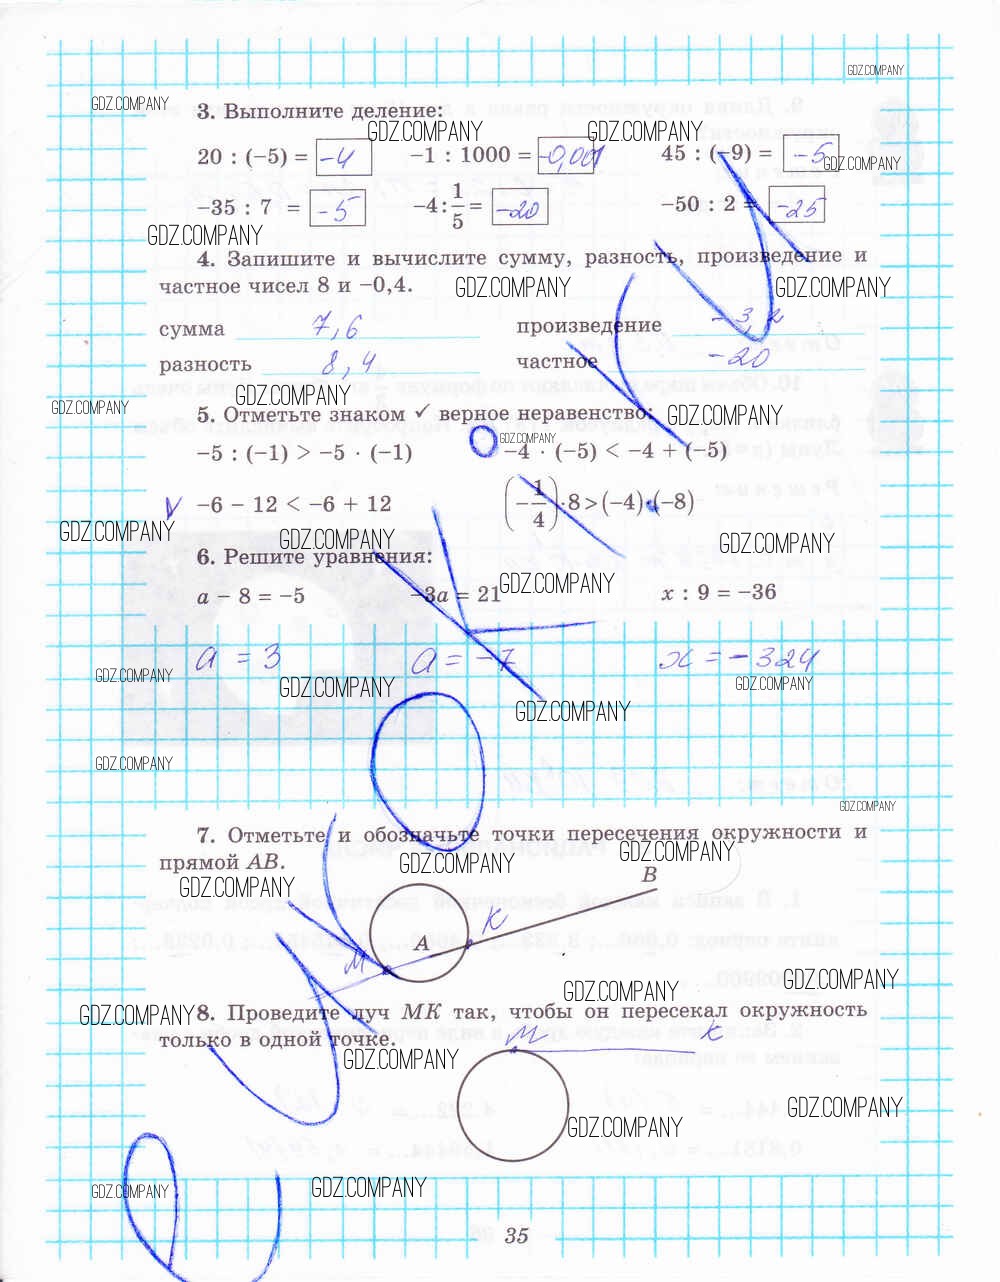 GDZ.COMPANY
GDZ.COMPANY
3. Выполните деление:
GDZ.COMPANY GDZ.COMPANY
20 : (−5) = -4 −1 : 1000 = -0,001 45 : (−9) = -5
GDZ.COMPANY
−35 : 7 = -5 −4 : 1/5 = -20 −50 : 2 = -25
GDZ.COMPANY
4. Запишите и вычислите сумму, разность, произведение и
частное чисел 8 и −0,4.
GDZ.COMPANY GDZ.COMPANY
сумма 7,6 произведение -3,2
разность 8,4 частное -20
GDZ.COMPANY
GDZ.COMPANY
5. Отметьте знаком ✓ верное неравенство:
GDZ.COMPANY
GDZ.COMPANY
−5 : (−1) > −5 · (−1) −4 · (−5) < −4 + (−5)
V −6 − 12 < −6 + 12 (−1/4) · 8 > (−4) · (−8)
GDZ.COMPANY GDZ.COMPANY GDZ.COMPANY
6. Решите уравнения:
GDZ.COMPANY
a − 8 = −5 −3a = 21 x : 9 = −36
a = 3 a = -7 x = -324
GDZ.COMPANY GDZ.COMPANY GDZ.COMPANY
GDZ.COMPANY
GDZ.COMPANY
GDZ.COMPANY
7. Отметьте и обозначьте точки пересечения окружности и
прямой AB.
GDZ.COMPANY GDZ.COMPANY
GDZ.COMPANY
B
K
A
M
GDZ.COMPANY GDZ.COMPANY
GDZ.COMPANY
8. Проведите луч MK так, чтобы он пересекал окружность
только в одной точке.
M K
GDZ.COMPANY
GDZ.COMPANY GDZ.COMPANY
GDZ.COMPANY GDZ.COMPANY
35